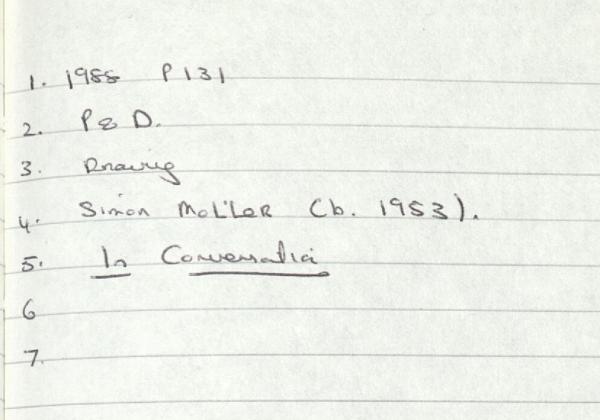 1. 1988 P131
2. P & D.
3. Drawing
4. Simon Moller (b. 1953).
5. In Conversation
6
7.